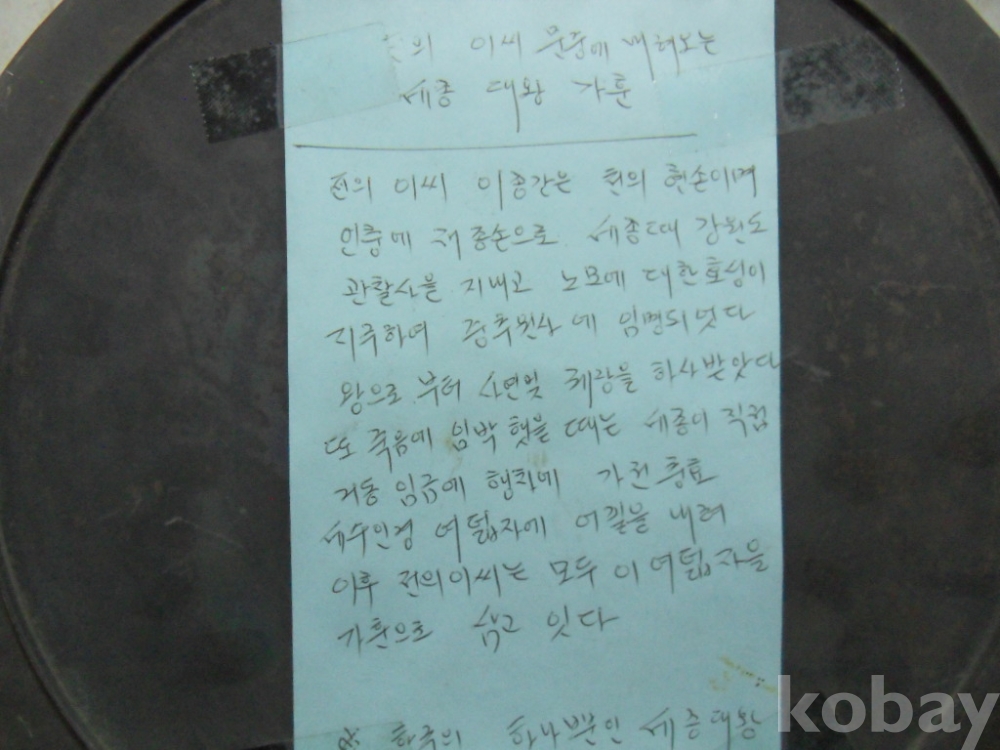 의 이씨 문중에 내려오는
세종 대왕 가훈
전의 이씨 이종간은 현손이며
인충에 재종손으로 세종때 강원도
관찰사을 지내고 노모에 대한효성이
지극하여 중추원사에 임명되엇다
왕으로 부터 사연및 궤장을 하사받앗다
또 죽음에 임박 햇을 때는 세종이 직접
거동 임금에 행차에 가전충효
세수인경 여덟자에 어필을 내려
이후 전의이씨는 모두 이 여덟자을
가훈으로 삼고 잇다
※ 한국의 하나뿐인 세종대왕
kobay